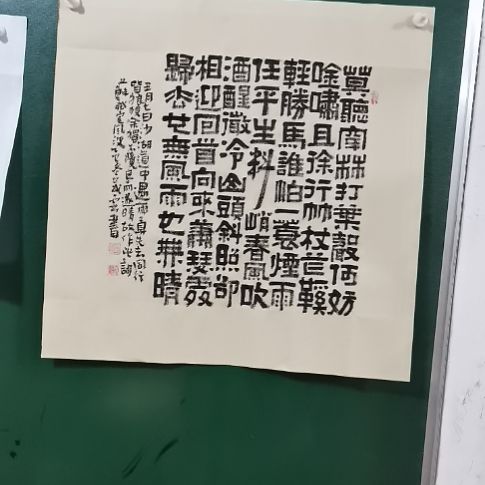 莫聽穿林打葉聲何妨
吟嘯且徐行竹杖芒鞵
輕勝馬誰怕一蓑煙雨
任平生料峭春風吹
酒醒微冷山頭斜照卻
相迎回首向來蕭瑟處
歸去也無風雨也無晴
三月七日沙湖道中遇雨雨具先去同行
皆狼狽余獨不覺已而遂晴故作此詞
蘇軾定風波